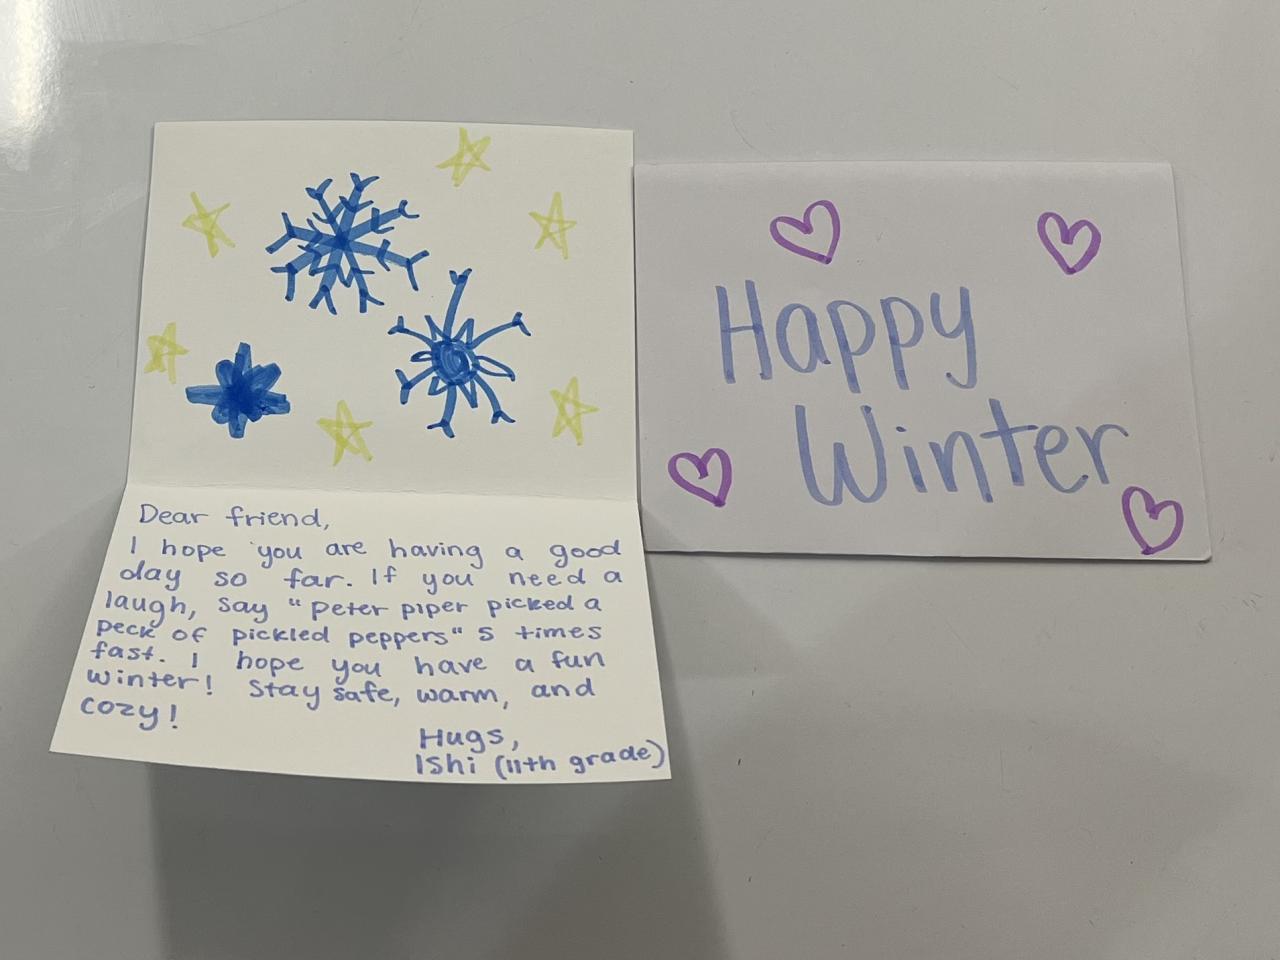 Dear friend,
I hope you are having a good
day so far. If you need a
laugh, say "peter piper picked a
peck of pickled peppers" 5 times
fast. I hope you have a fun
winter! Stay safe, warm, and
cozy!
Hugs,
Ishi (11th grade)
Happy
Winter